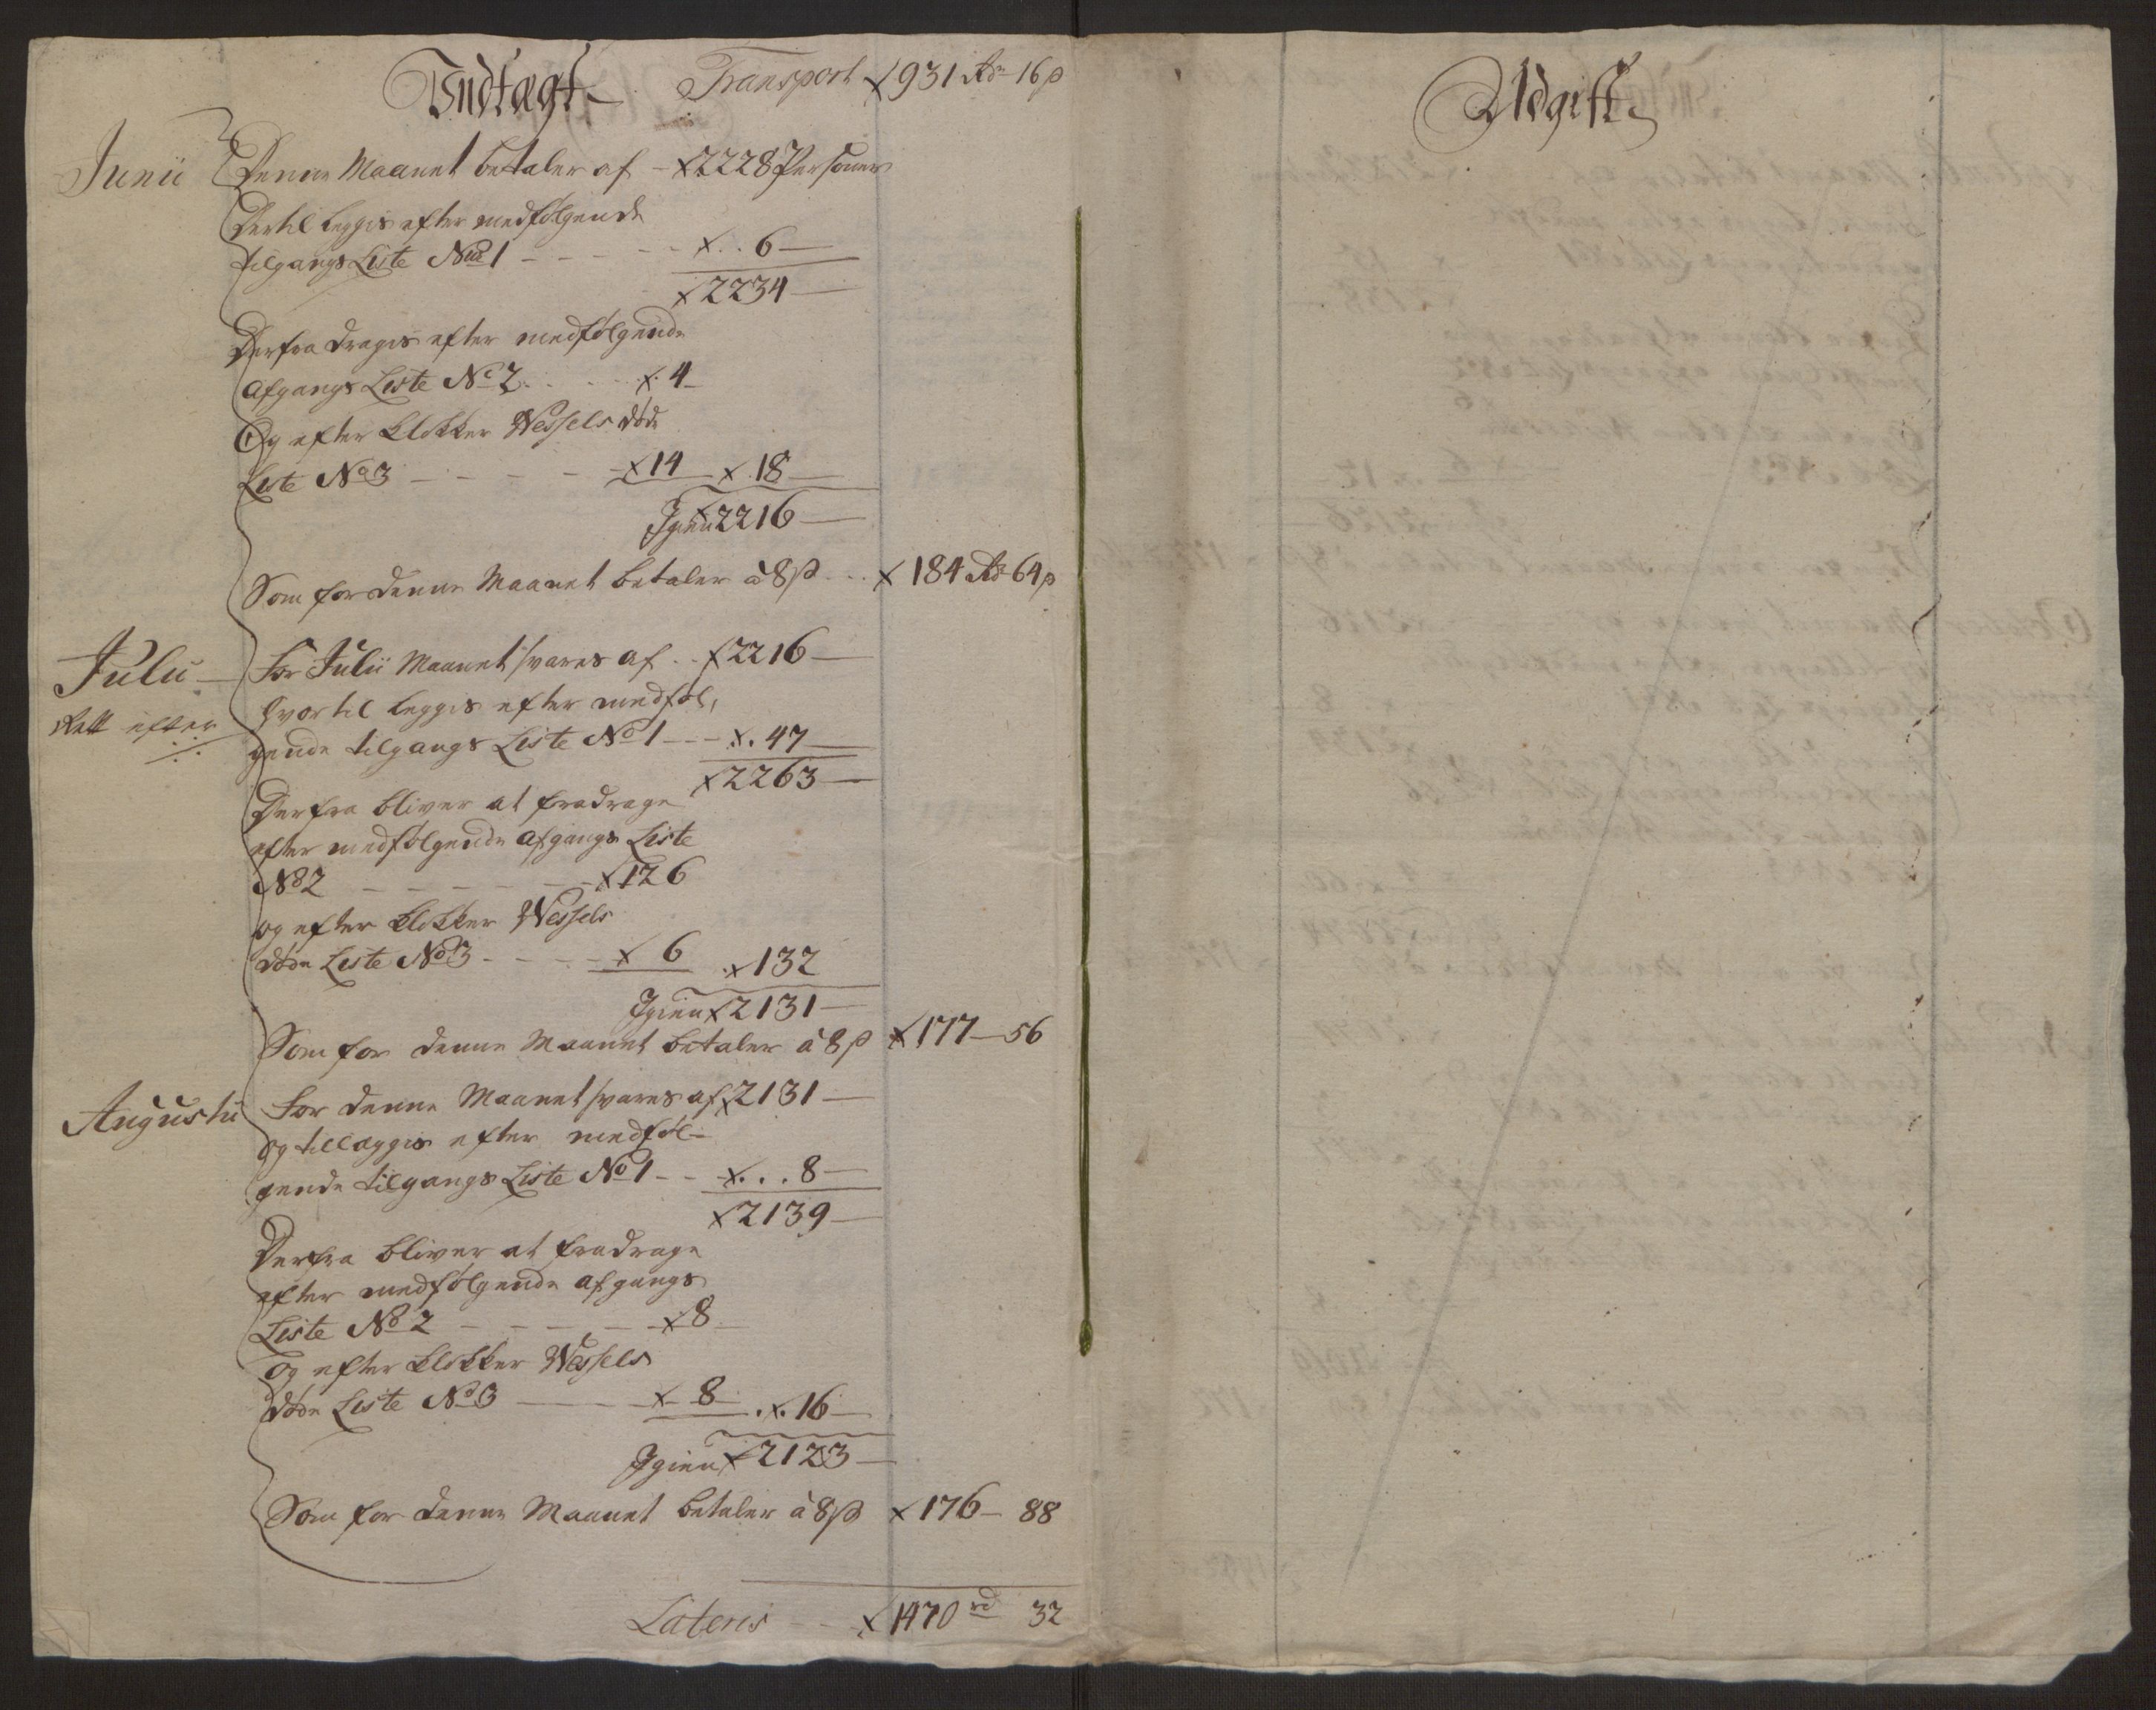 Indtægt Transport x 931 Rdr 16 β
Junii Denne Maanet betaler af - x 2228 Personer
Dertil legges efter medfølgende
tilgangs Liste No 1 - - - - x . . 6 —
x 2234 —
Derfra dragis efter medfølgende
afgangs Liste No 2 . . . . x . 4 —
Og efter Klokker Wessels døde
Liste No 3 - - - - x 14 x . 18 —
Igien x 2216 —
Som for denne Maanet betaler à 8 β . . x 184 Rdr 64 β
Julii — For Julii Maanet svares af . . x 2216 —
hvortil legges efter medføl,
Rett efter
gende tilgangs Liste No 1 - - - x . 47 —
x 2263 —
Derfra bliver at fradrage
efter medfølgende afgangs Liste
No 2 - - - - - - x 126
og efter Klokker Wessels
døde Liste No 3 - - - - x 6 . x 132
Igien x 2131 —
Som for denne Maanet betaler à 8 β x 177 — 56
Augustii For denne Maanet svares af x 2131 —
og tillægges efter medføl-
gende tilgangs Liste No 1 - - x . . . 8 —
x 2139 —
Derfra bliver at fradrage
efter medfølgende afgangs
Liste No 2 - - - - - x 8 —
og efter Klokker Wessels
døde Liste No 3 — x 8 — . x . 16 —
Igien x 2123 —
Som for denne Maanet betaler à 8 β x 176 — 88
Lateris - - x 1470 rd 32
Udgift